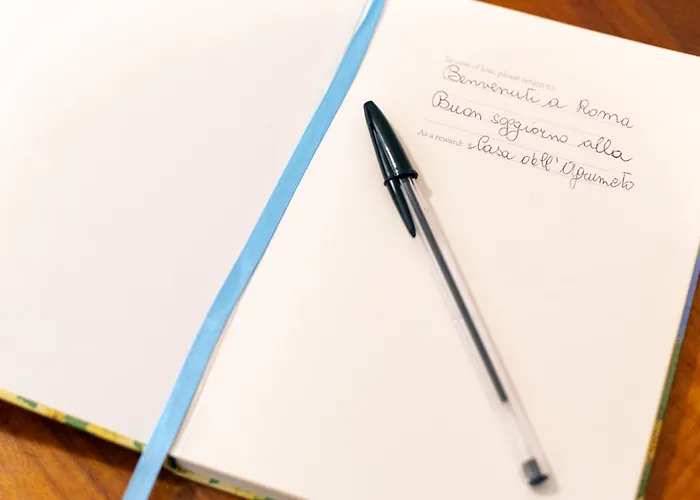 In case of loss, please return to:
Benvenuti a Roma
Buon soggiorno alla
As a reward: Casa dell'Agrumeto